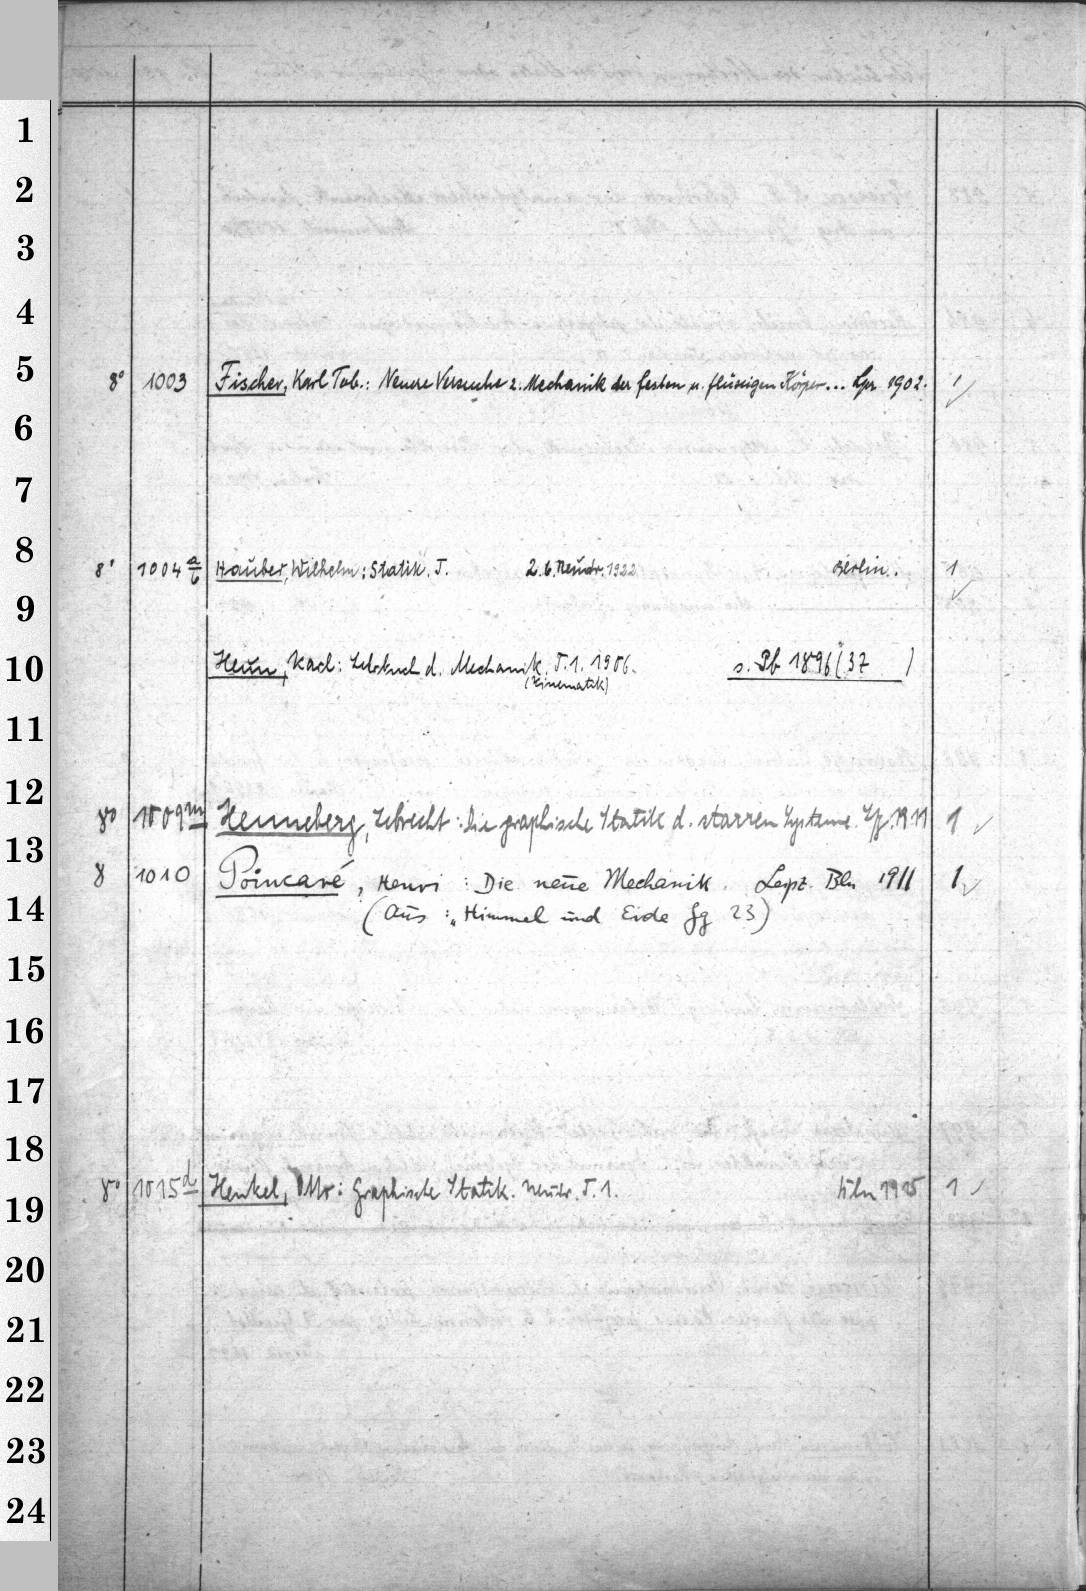 1
2
3
4
5
8° 1003 Fischer, Karl Tob.: Neuere Versuche z. Mechanik der festen u. flüssigen Köper... Lpz. 1902. 1
6
7
8
8° 1004 a/b Hauber, Wilhelm: Statik. T. 2. 6. Neudr. 1922 Berlin. 1
9
10 Heun, Karl: Lehrbuch d. Mechanik. T. 1. 1906. s. Pb 1896 (37 )
(Kinematik)
11
12
8° 1009m Henneberg, Lebrecht: Die graphische Statik d. starren Systeme. Lpz. 1911 1
13
8 1010 Poincaré, Henri: Die neue Mechanik. Leipz. Bln 1911 1
14 (Aus: „Himmel und Erde Jg 23)
15
16
17
18
8° 1015d Henkel, Otto: Graphische Statik. Neudr. T. 1. Bln 1915 1
19
20
21
22
23
24